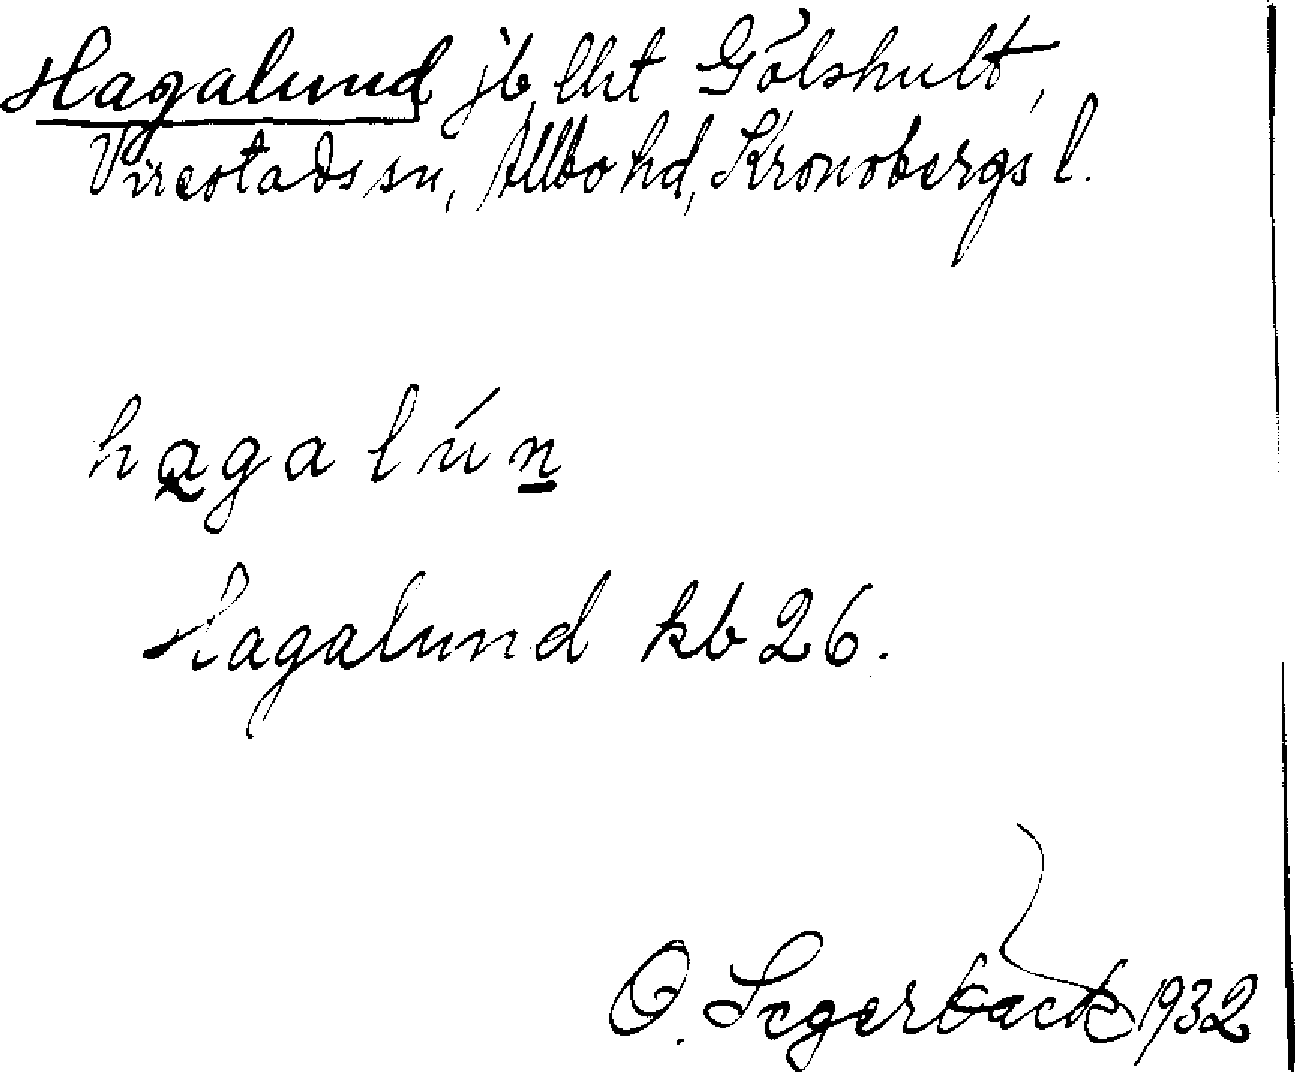 Hagalund jb lht Gölshult,
Virestads sn, Allbo hd, Kronobergs l.
hagalún
Hagalund kb 26.
O. Segerbäck 1932